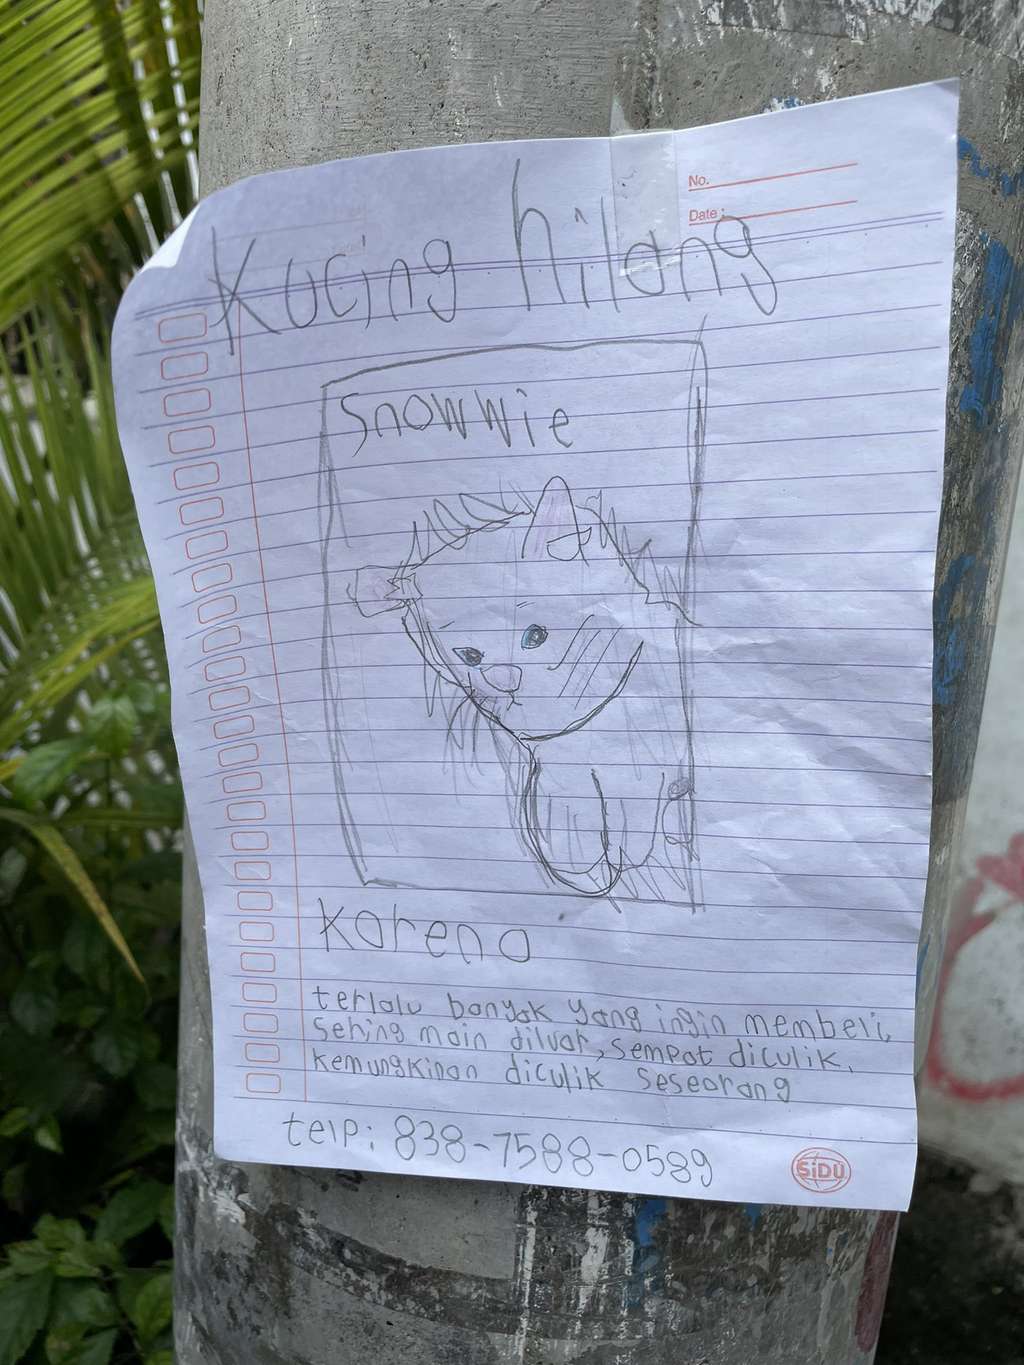 No.
Date:
Kucing hilang
Snowwie
karena
terlalu banyak yang ingin memberi,
sering main diluar, sempat diculik,
kemungkinan diculik seseorang
telp: 838-7588-0589
SiDU